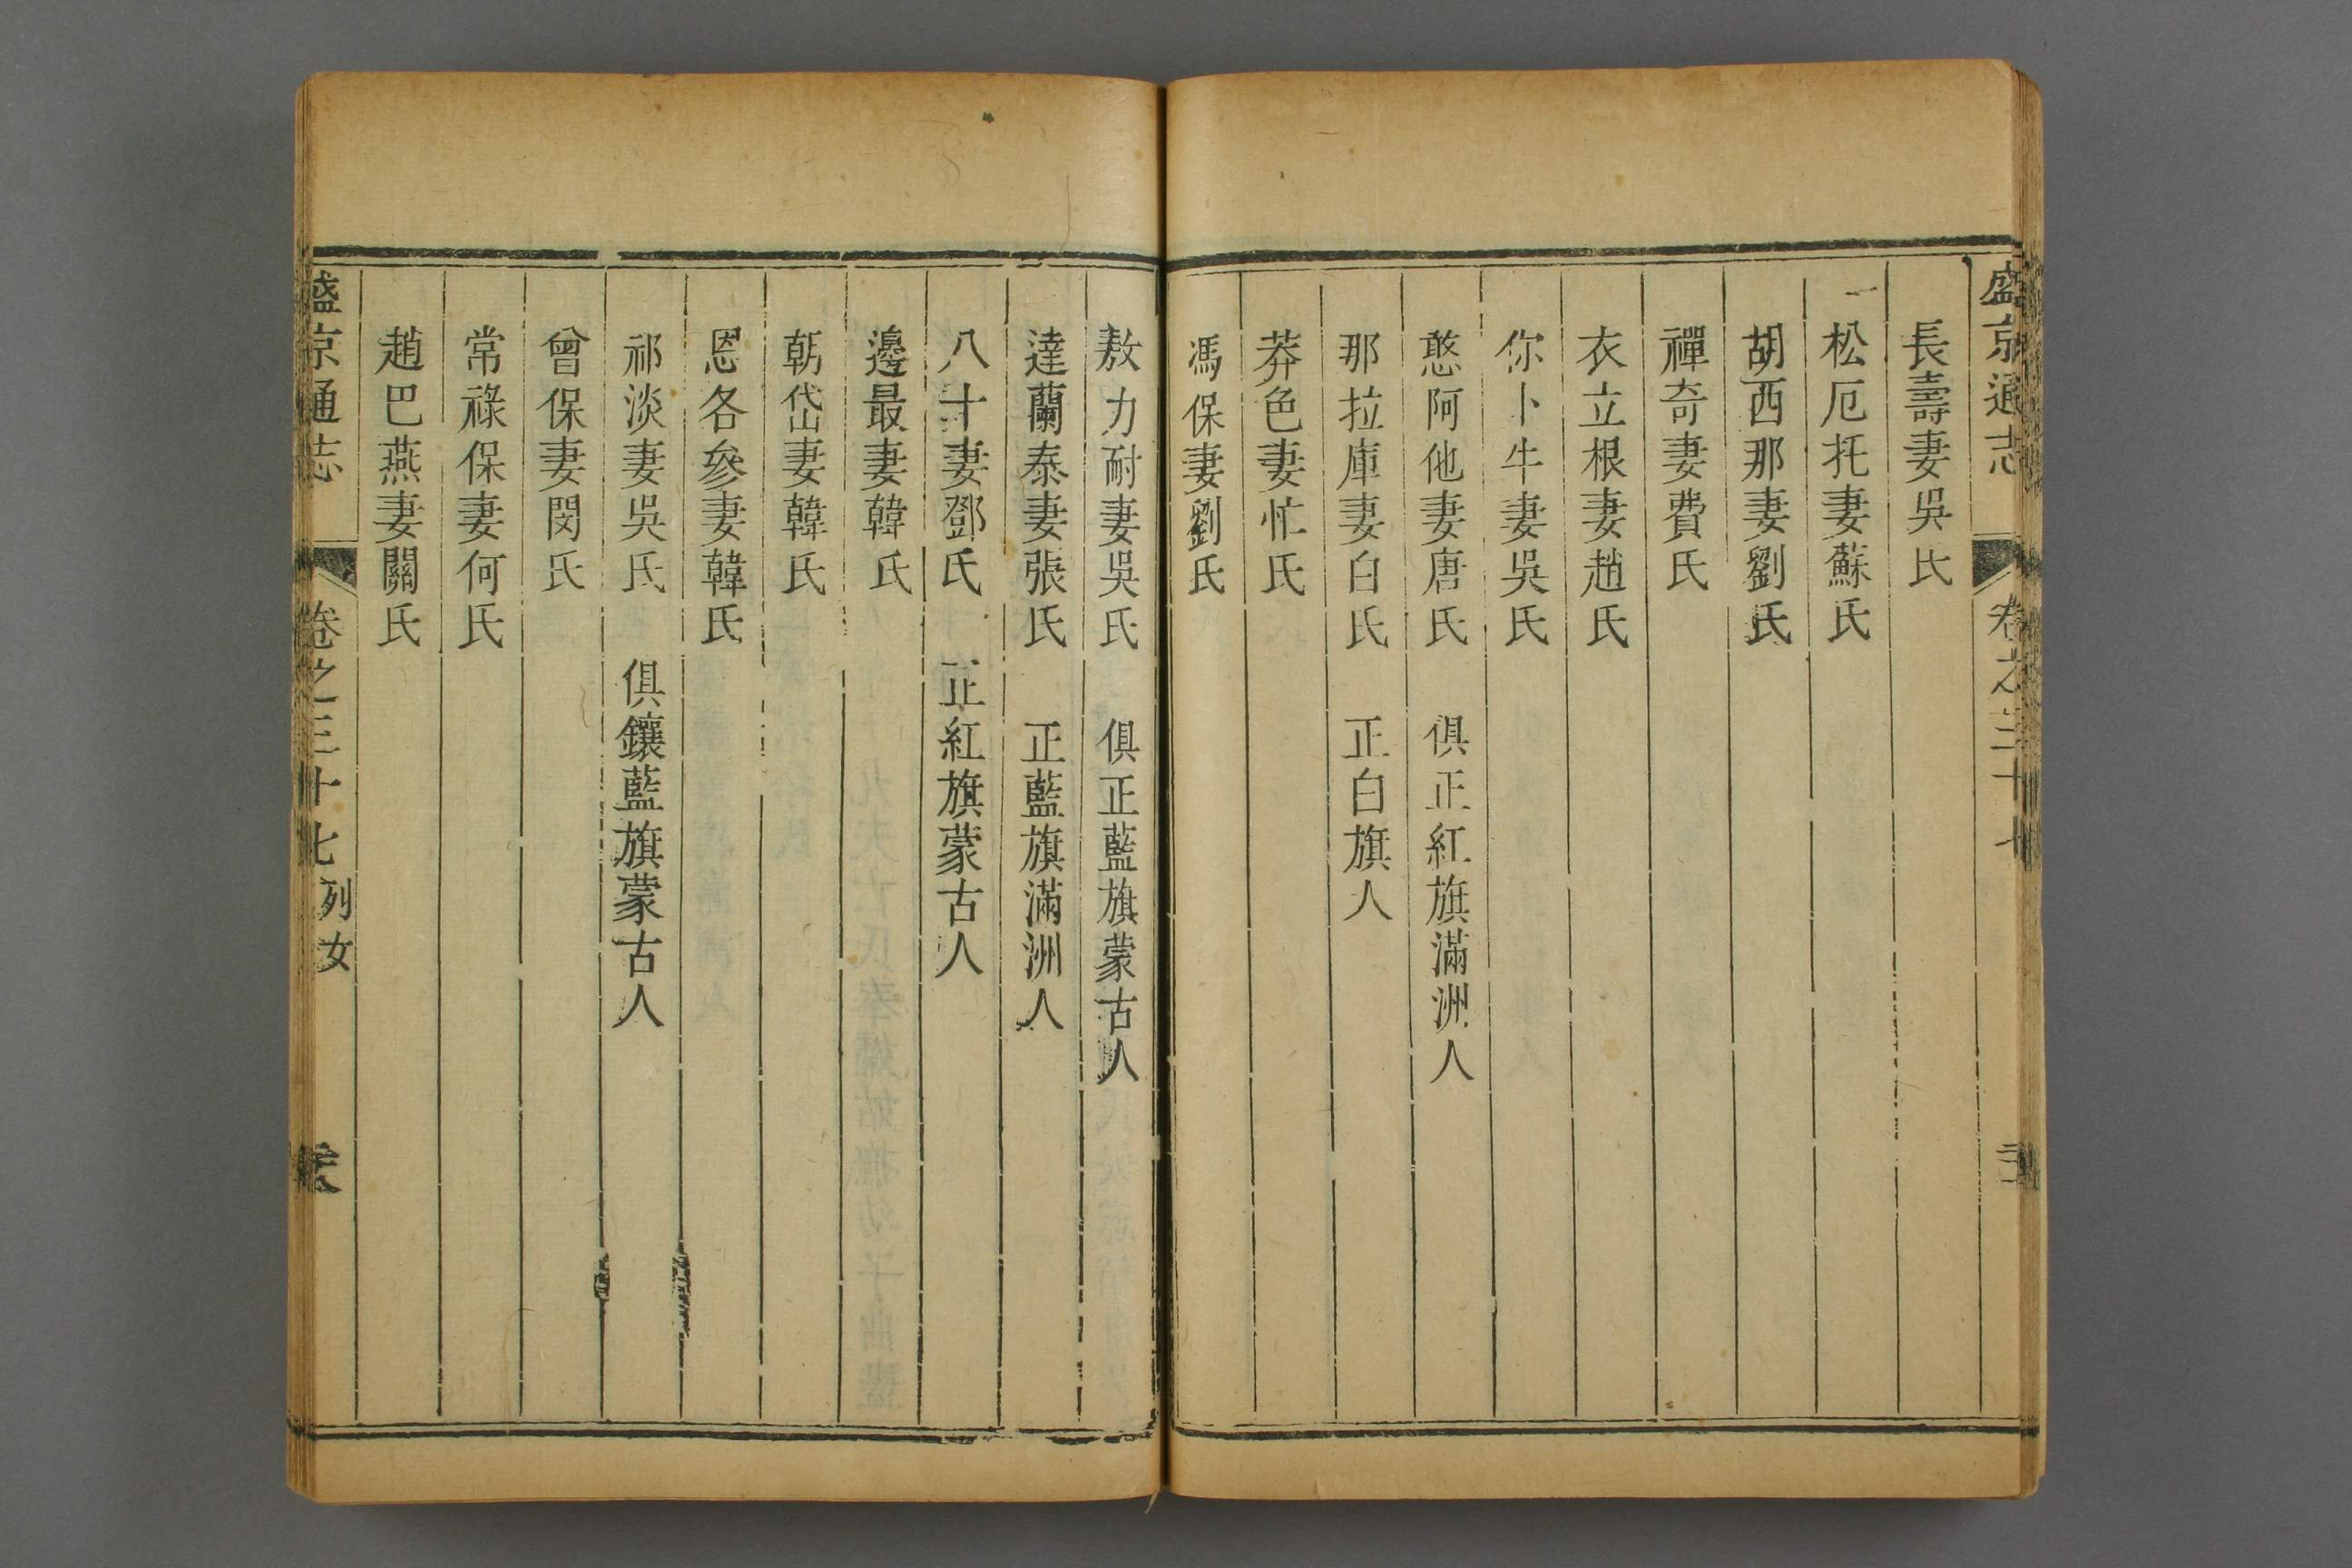 盛京通志 卷之三十七
長壽妻吳氏
松厄托妻蘇氏
胡西那妻劉氏
禪奇妻費氏
衣立根妻趙氏
你卜牛妻吳氏
憨阿他妻唐氏 俱正紅旗滿洲人
那拉庫妻白氏 正白旗人
莽色妻忙氏
馮保妻劉氏
敖力耐妻吳氏 俱正藍旗蒙古人
達蘭泰妻張氏 正藍旗滿洲人
八十妻鄧氏 正紅旗蒙古人
邊最妻韓氏
朝岱妻韓氏
恩各參妻韓氏
祁淡妻吳氏 俱鑲藍旗蒙古人
曾保妻閔氏
常祿保妻何氏
趙巴燕妻關氏
盛京通志 卷之三十七 列女